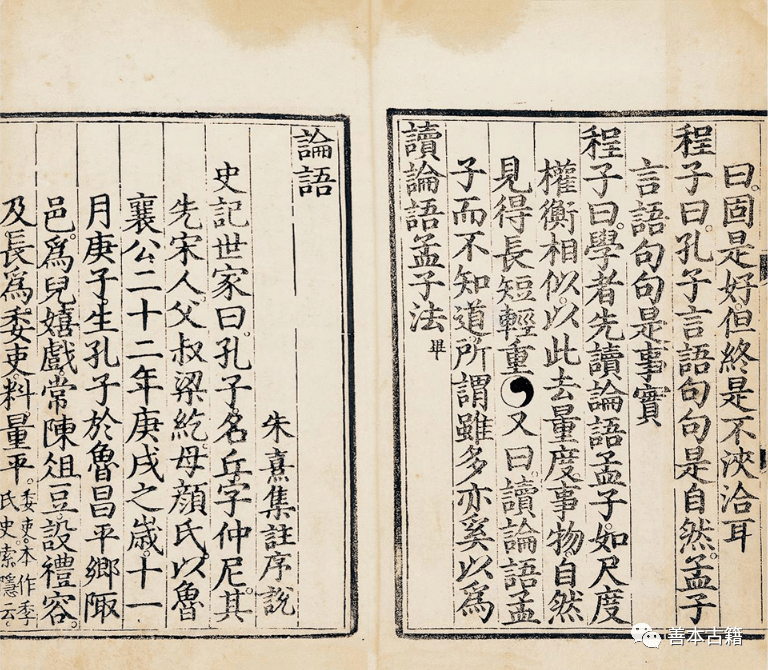 曰。固是好。但終是不浹洽耳
程子曰。孔子言語句句是自然。孟子
言語句句是事實
程子曰。學者先讀論語孟子。如尺度
權衡相似。以此去量度事物。自然
見得長短輕重 又曰。讀論語孟
子而不知道。所謂雖多亦奚以為
讀論語孟子法 畢
論語
朱熹集註序說
史記世家曰。孔子名丘。字仲尼。其
先宋人。父叔梁紇。母顏氏。以魯
襄公二十二年庚戌之歲。十一
月庚子。生孔子於魯昌平鄉陬
邑。為兒嬉戲。常陳俎豆。設禮容。
及長。為委吏。料量平。委吏。本作季
氏史。索隱云。
善本古籍